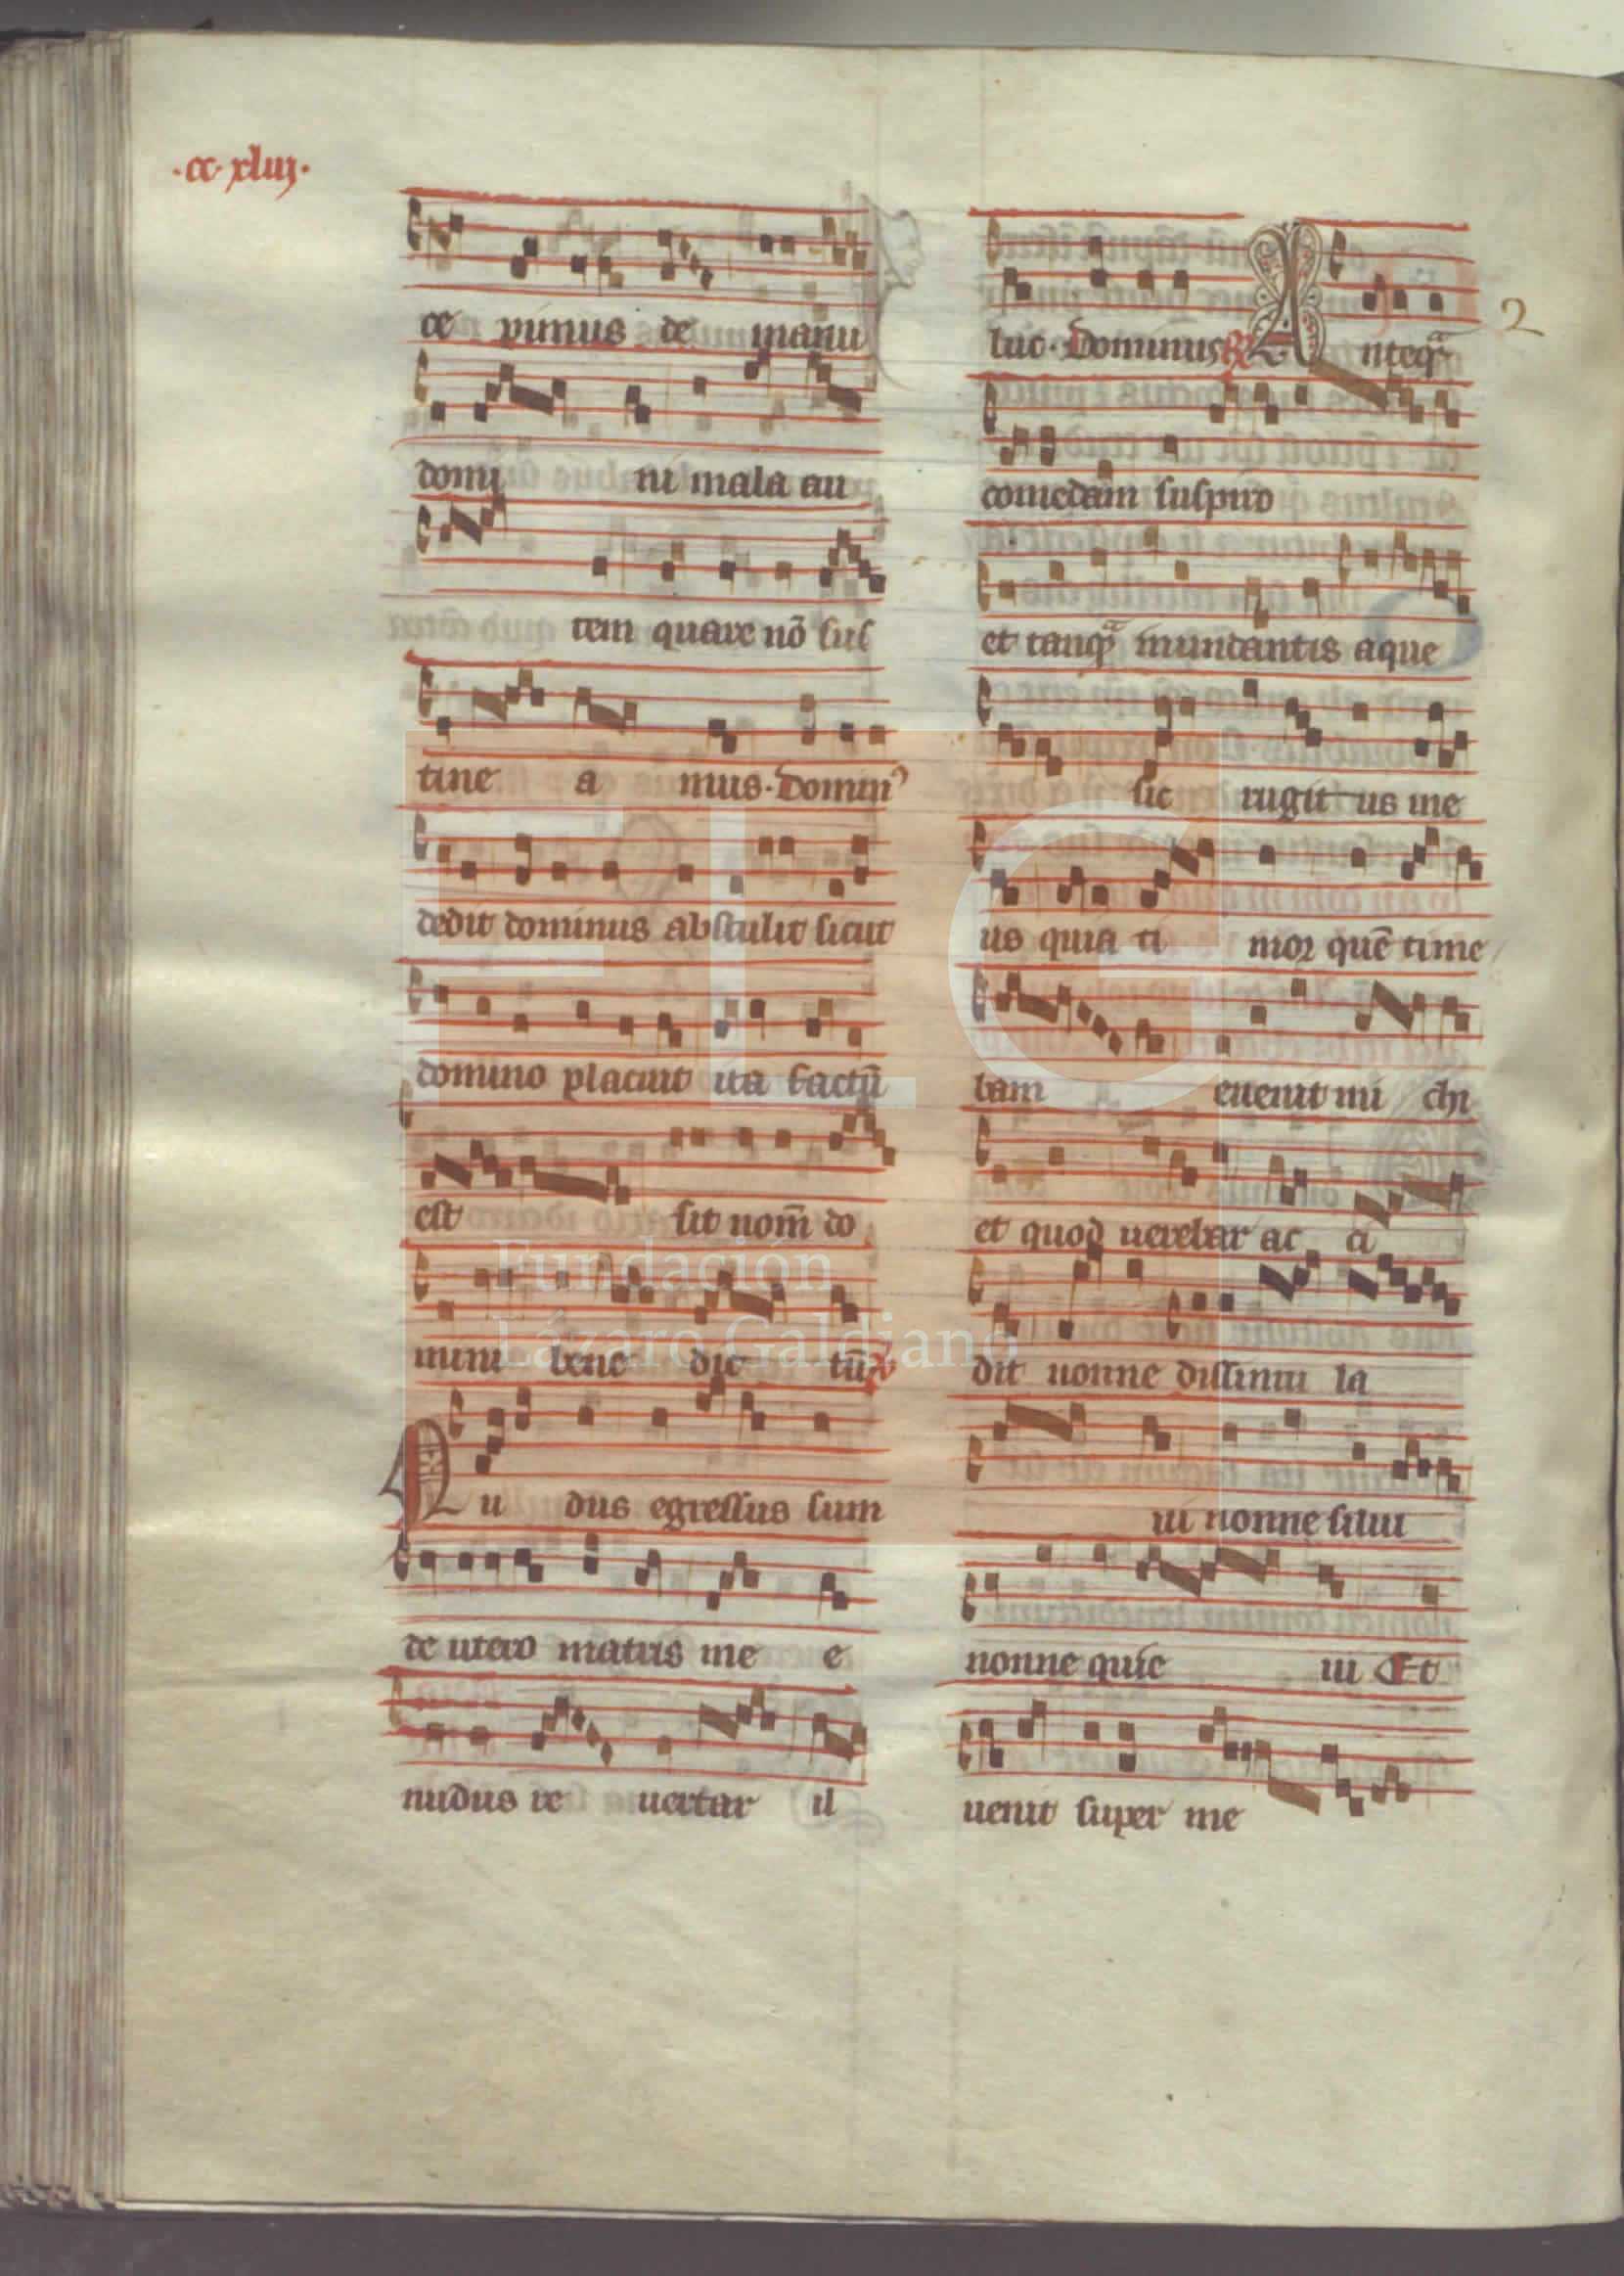 ·cc·xluj·
ce pimus de manu
domi ni mala au
tem quare nō sus
tine a mus· Domin⁹
dedit dominus abstulit sicut
domino placuit ita factū
est sit nom̄ do
mini bene dic tū ℣
Nu dus egressus sum
de utero matris me e
nudus re uertar il
luc· Dominus ℟ Anteqᵃ
2
comedam suspiro
et tanqᵃ inundantis aque
sic rugit us me
us quia ti mor quē time
bam euenit mi chi
et quod uerebar ac ci
dit nonne dissimu la
ui nonne silui
nonne quie ui Et
uenit super me
FLG
Fundación
Lázaro Galdiano